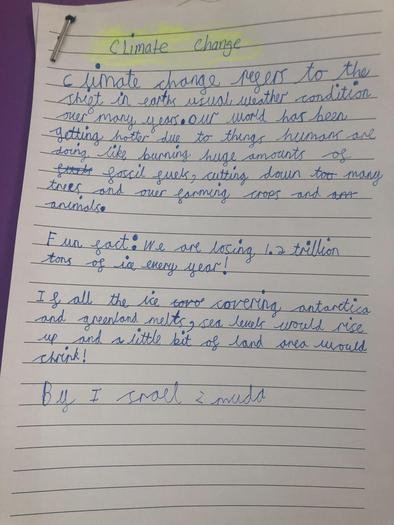 Climate Change
Climate change refers to the
shift in earths usual weather condition
over many years. Our world has been
getting hotter due to things humans are
doing like burning huge amounts of
fossil fuels, cutting down too many
trees and over farming crops and
animals.
Fun fact: We are losing 1.2 trillion
tons of ice every year!
If all the ice covering antarctica
and greenland melts, sea levels would rise
up and a little bit of land area would
shrink!
By Israel